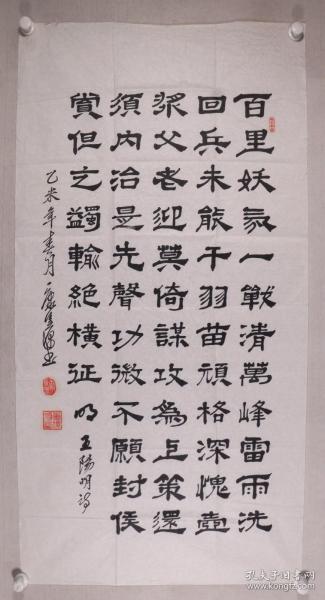 百里妖氛一戰清萬峰雷雨洗
回兵未能干羽苗頑格深愧壺
漿父老迎莫倚謀攻為上策還
須内治是先聲功微不願封侯
賞但之蠲輸絕橫征 明王陽明詩
乙未年春月 書
孔夫子旧书网